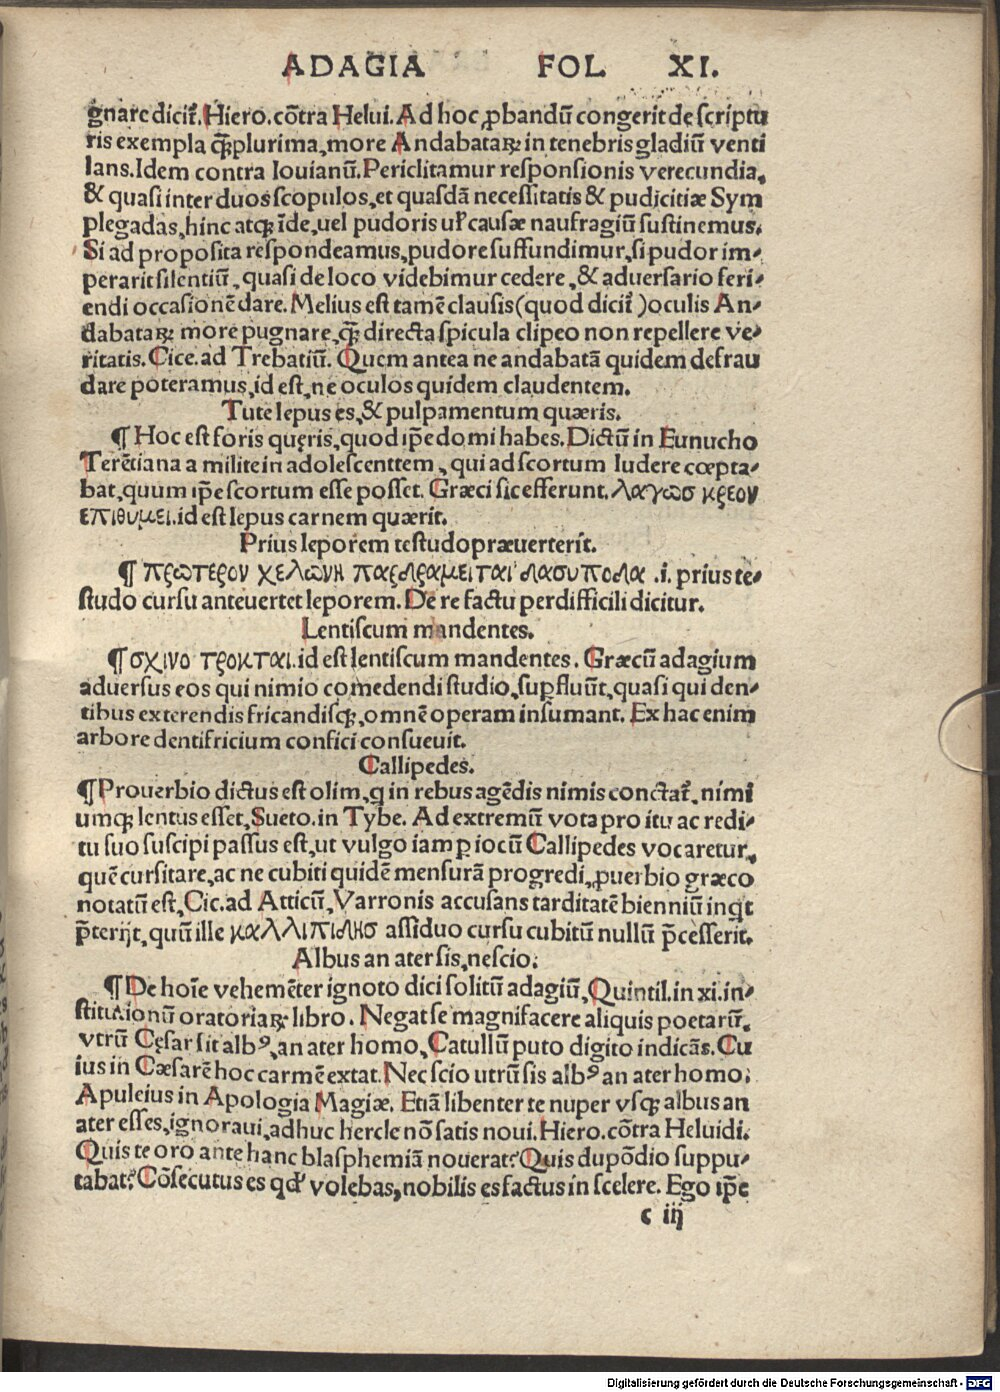 ADAGIA FOL XI.
gnare dicit᷑. Hiero. cõtra Helui. Ad hoc ꝓbandũ congerit de scriptu
ris exempla q̃ꝫplurima, more Andabataꝝ in tenebris gladiũ venti
lans. Idem contra Iouianũ. Periclitamur responsionis verecundia,
& quasi inter duos scopulos, et quasdã necessitatis & pudicitiæ Sym
plegadas, hinc atqꝫ ĩde, uel pudoris uɫ causæ naufragiũ sustinemus.
Si ad proposita respondeamus, pudore suffundimur, si pudor im-
perarit silentiũ, quasi de loco videbimur cedere, & aduersario feri-
endi occasionẽ dare. Melius est tamẽ clausis (quod dicit᷑) oculis An-
dabataꝝ more pugnare, q̃ꝫ directa spicula clipeo non repellere ve-
ritatis. Cice. ad Trebatiũ. Quem antea ne andabatã quidem defrau
dare poteramus, id est, ne oculos quidem claudentem.
Tute lepus es, & pulpamentum quæris.
¶ Hoc est foris quęris, quod ip̃e domi habes. Dictũ in Eunucho
Terẽtiana a milite in adolescenttem, qui ad scortum ludere cœpta-
bat, quum ip̃e scortum esse posset. Græci sic efferunt. λαγωσ κρεον
επιθυμει. id est lepus carnem quærit.
Prius leporem testudo præuerterit.
¶ πρωτερον χελωνη παρδραμειται δασυποδα .i. prius te-
studo cursu anteuertet leporem. De re factu perdifficili dicitur.
Lentiscum mandentes.
¶ σχινο τροκται. id est lentiscum mandentes. Græcũ adagium
aduersus eos qui nimio comedendi studio, suꝑfluũt, quasi qui den-
tibus exterendis fricandisqꝫ, omnẽ operam insumant. Ex hac enim
arbore dentifricium confici consueuit.
Callipedes.
¶ Prouerbio dictus est olim, q in rebus agẽdis nimis conctat᷑, nimi
umqꝫ lentus esset, Sueto. in Tybe. Ad extremũ vota pro itu ac redi-
tu suo suscipi passus est, ut vulgo iam ꝑ iocũ Callipedes vocaretur,
quẽ cursitare, ac ne cubiti quidẽ mensurã progredi, ꝓuerbio græco
notatũ est, Cic. ad Atticũ, Varronis accusans tarditatẽ bienniũ inqͥt
p̃terijt, quũ ille καλλιπιδησ assiduo cursu cubitũ nullũ p̃cesserit.
Albus an ater sis, nescio.
¶ De hoĩe vehemẽter ignoto dici solitũ adagiũ, Quintil. in xi. in-
stitutionũ oratoriaꝝ libro. Negat se magnifacere aliquis poetarũ,
vtrũ Cęsar sit albꝰ, an ater homo, Catullũ puto digito indicãs. Cu
ius in Cæsarẽ hoc carmẽ extat. Nec scio utrũ sis albꝰ an ater homo.
Apuleius in Apologia Magiæ. Etiã libenter te nuper vsqꝫ albus an
ater esses, ignoraui, adhuc hercle nõ satis noui. Hiero. cõtra Heluidi.
Quis te oro ante hanc blasphemiã nouerat? Quis dupõdio suppu-
tabat? Cõsecutus es qđ volebas, nobilis es factus in scelere. Ego ip̃e
c iij
Digitalisierung gefördert durch die Deutsche Forschungsgemeinschaft - DFG